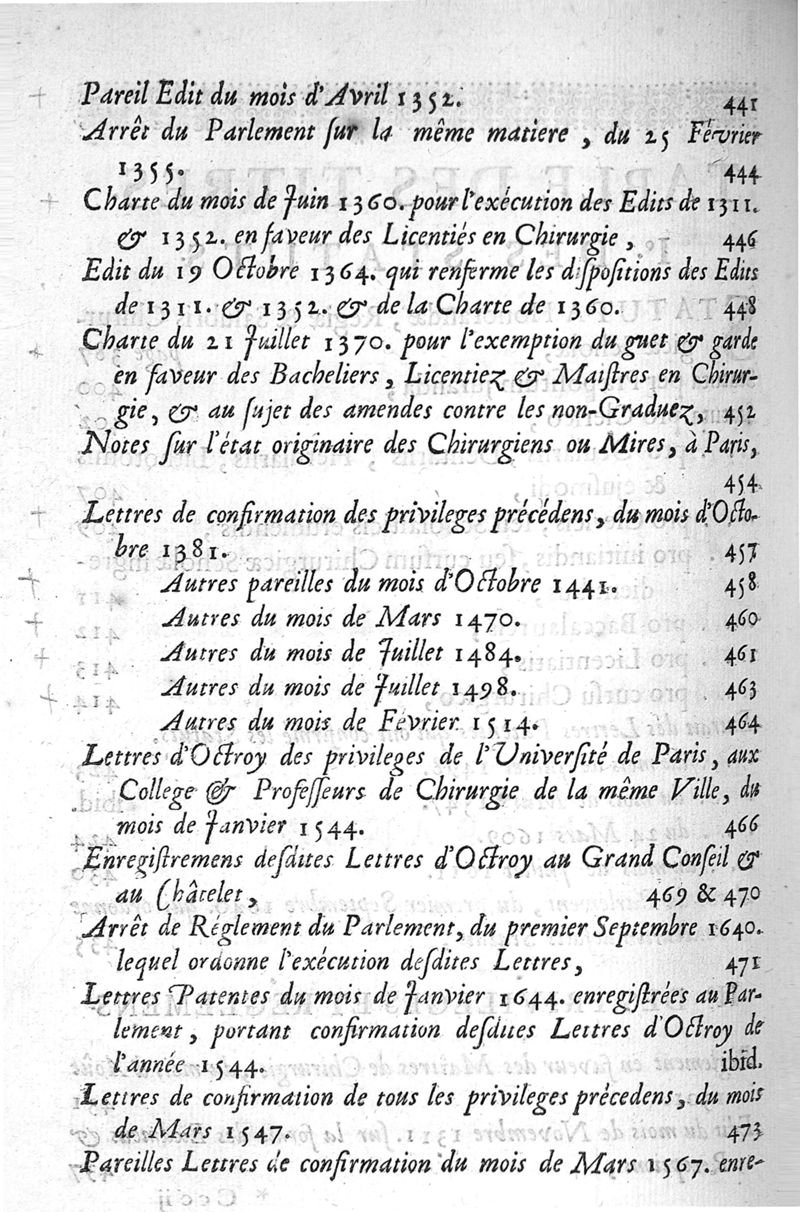 Pareil Edit du mois d'Avril 1352. 441
Arrêt du Parlement ſur la même matiere, du 25 Février
1355. 444
Charte du mois de Juin 1360. pour l'exécution des Edits de 1311.
& 1352. en faveur des Licentiés en Chirurgie, 446
Edit du 19 Octobre 1364. qui renferme les diſpoſitions des Edits
de 1311. & 1352. & de la Charte de 1360. 448
Charte du 21 Juillet 1370. pour l'exemption du guet & garde
en faveur des Bacheliers, Licentiez & Maiſtres en Chirur-
gie, & au ſujet des amendes contre les non-Graduez, 452
Notes ſur l'état originaire des Chirurgiens ou Mires, à Paris,
454
Lettres de confirmation des privileges précédens, du mois d'Octo-
bre 1381. 457
Autres pareilles du mois d'Octobre 1441. 458
Autres du mois de Mars 1470. 460
Autres du mois de Juillet 1484. 461
Autres du mois de Juillet 1498. 463
Autres du mois de Février 1514. 464
Lettres d'Octroy des privileges de l'Univerſité de Paris, aux
College & Profeſſeurs de Chirurgie de la même Ville, du
mois de Janvier 1544. 466
Enregiſtremens deſdites Lettres d'Octroy au Grand Conſeil &
au Châtelet, 469 & 470
Arrêt de Réglement du Parlement, du premier Septembre 1640.
lequel ordonne l'exécution deſdites Lettres, 471
Lettres Patentes du mois de Janvier 1644. enregiſtrées au Par-
lement, portant confirmation deſdites Lettres d'Octroy de
l'année 1544. ibid.
Lettres de confirmation de tous les privileges précedens, du mois
de Mars 1547. 473
Pareilles Lettres de confirmation du mois de Mars 1567. enre-